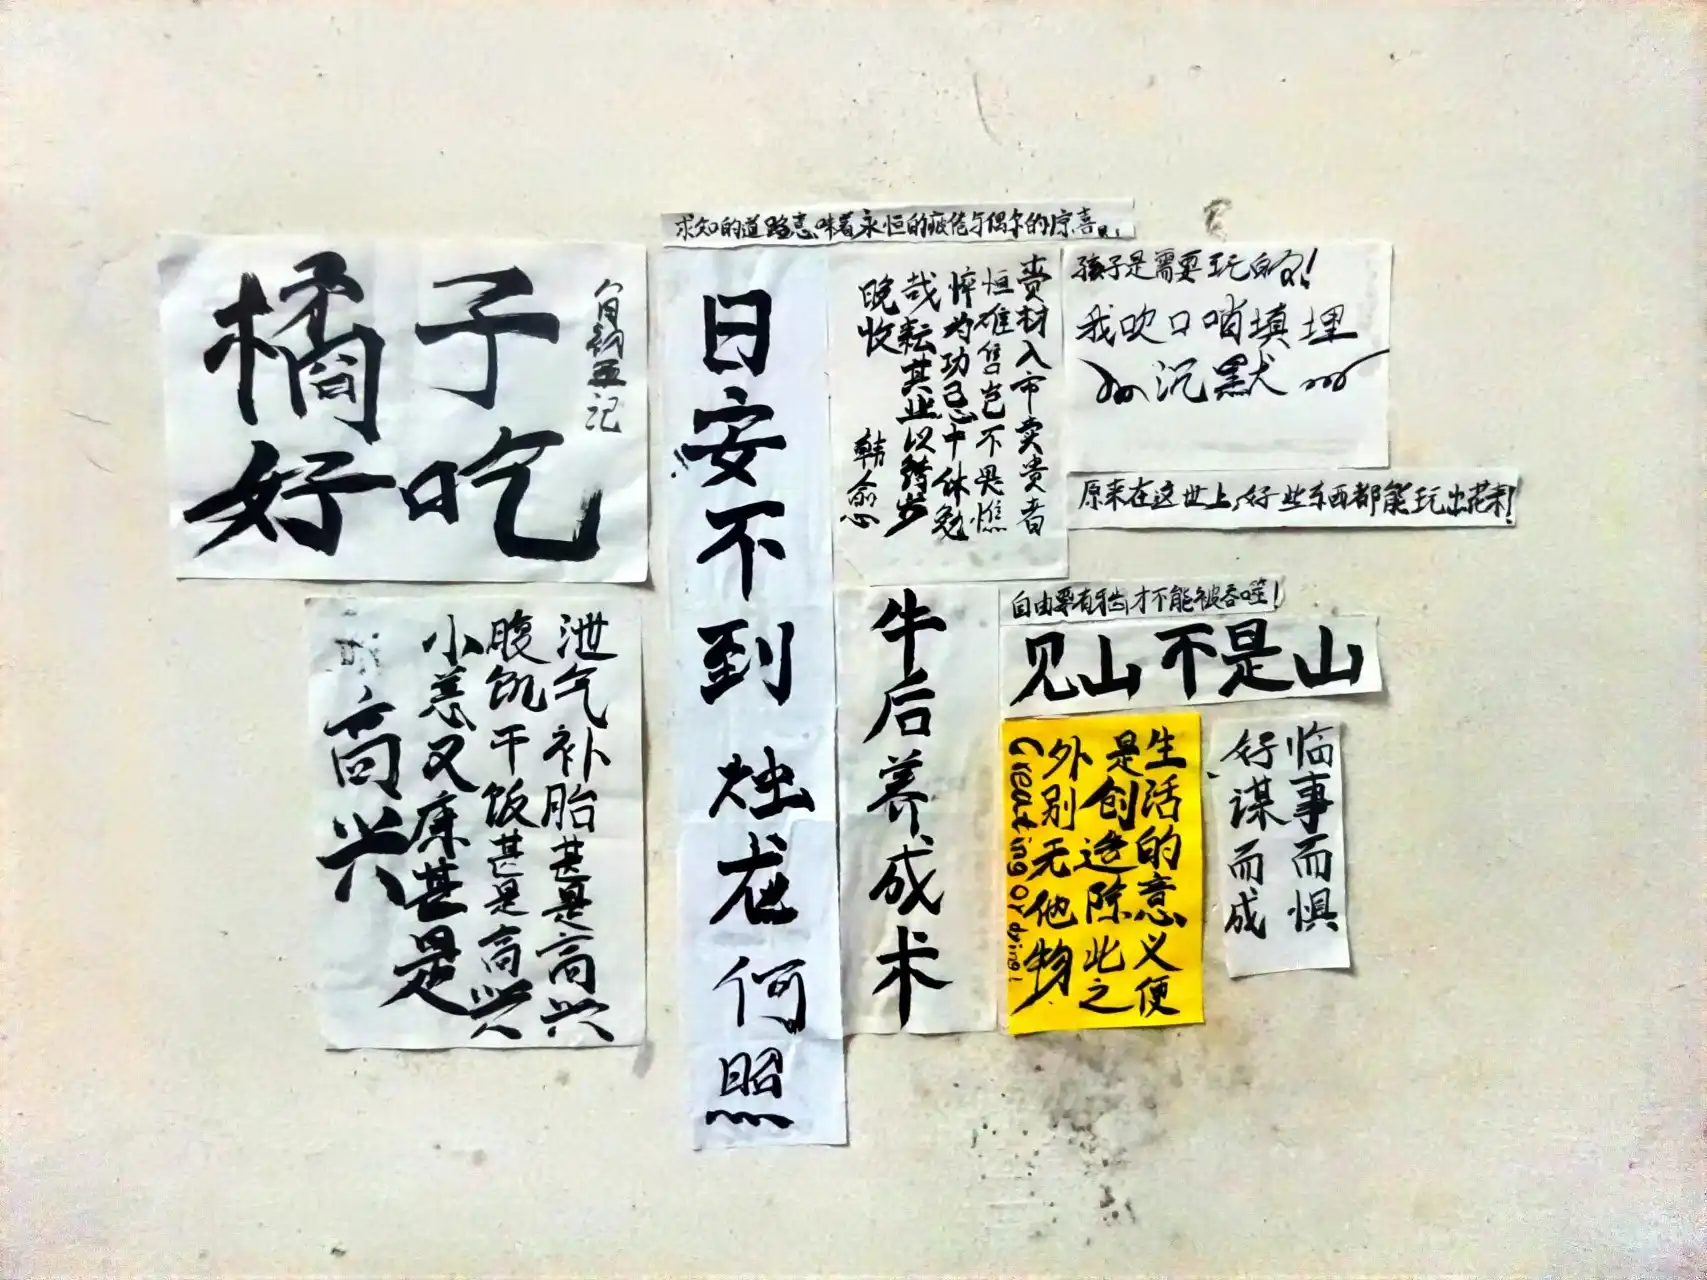 橘子
好吃
求知的道路意味着永恒的疲倦与偶尔的惊喜!
日安不到烛龙何照
赍材入市卖贵者
恒难售岂不畏憔
悴为功忌中休勉
哉耘其业以待岁
晚收
韩愈
孩子是需要玩的!
我吹口哨填埋
沉默
原来在这世上,好些东西都能玩出花来!
泄气补胎甚是高兴
腹饥干饭甚是高兴
小恙又康甚是
高兴
牛后养成术
自由要有牙齿才不能被吞噬!
见山不是山
生活的意义便
是创造除此之
外别无他物
Creating or dying!
临事而惧
好谋而成